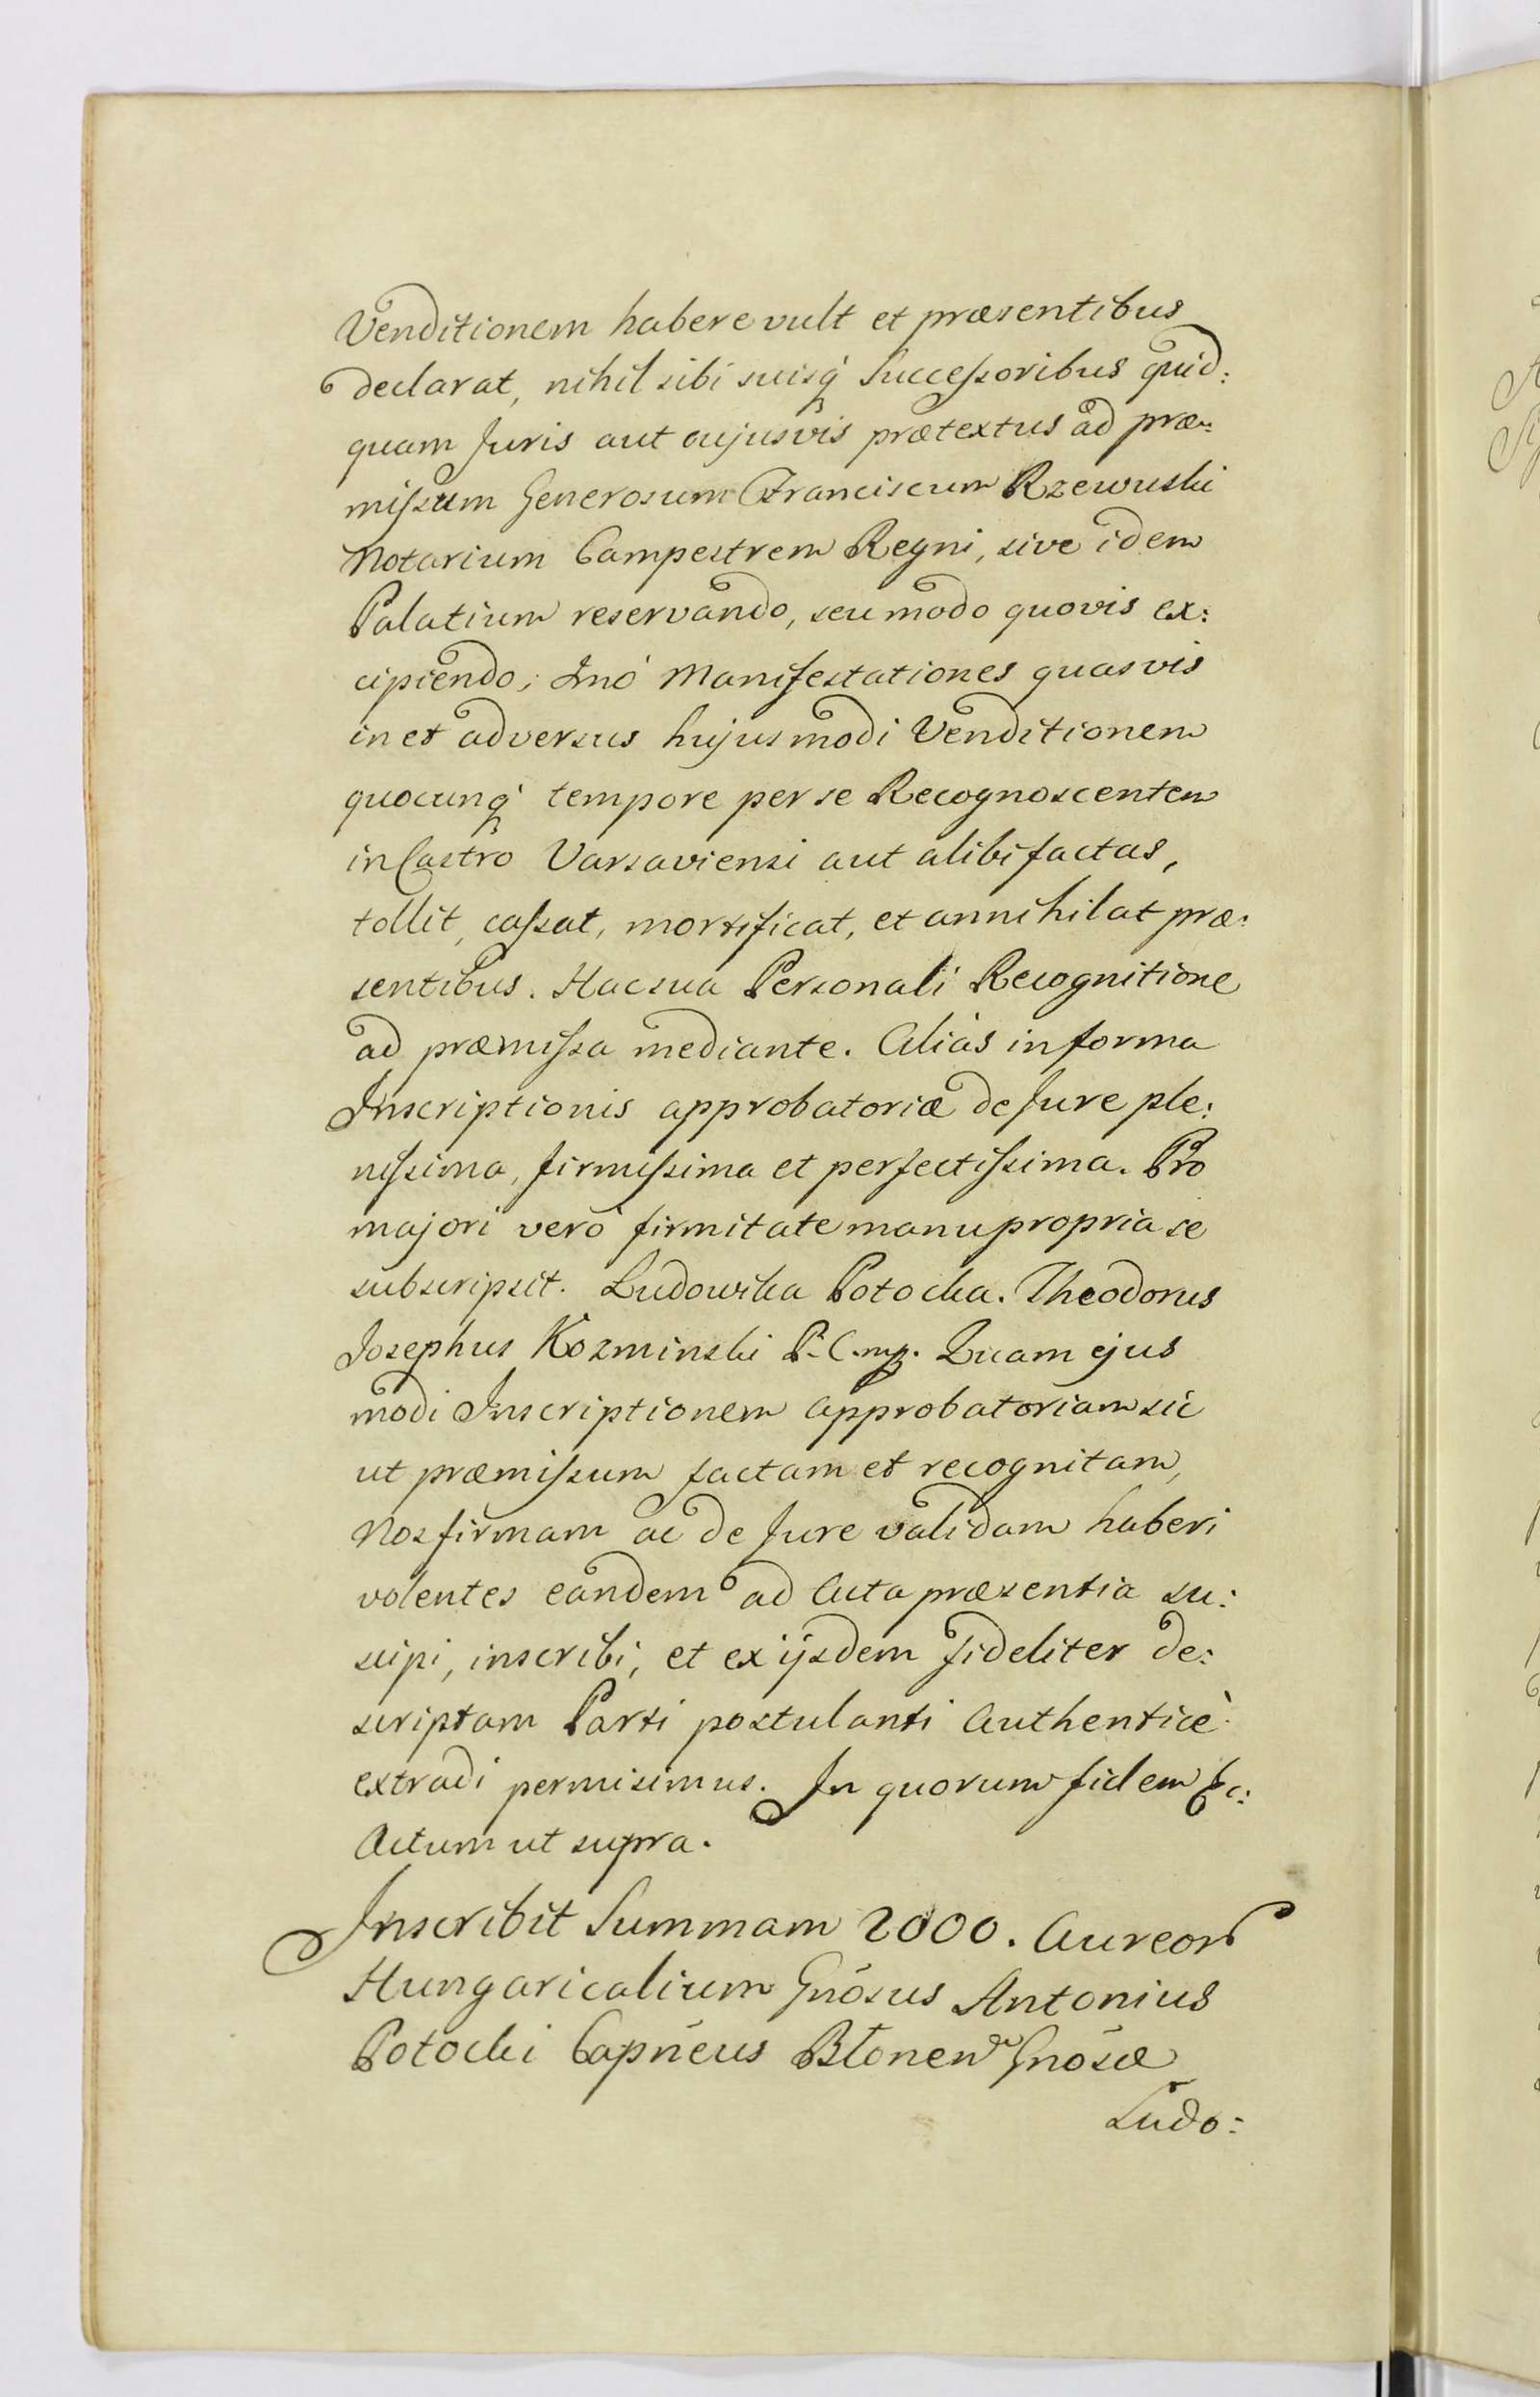 Venditionem habere vult et præsentibus
declarat, nihil sibi suisq́ Succeſsoribus quid:
quam Juris aut cujusvis prætextus ad præ:
miſsum Generosum Franciscum Rzewuski
Notarium Campestrem Regni, sive idem
Palatium reservando, seu modo quovis ex:
cipiendo; Imó Manifestationes quasvis
in et adversus hujusmodi Venditionem
quocunq́ tempore per se Recognoscentem
in Castro Varsaviensi aut alibi factas,
tollit, caſsat, mortificat, et annihilat præ:
sentibus. Hac sua Personali Recognitione
ad præmiſsa mediante. Aliàs in forma
Inscriptionis approbatoriæ de Jure ple:
niſsima, firmiſsima et perfectiſsima. Pro
majori verò firmitate manu propria se
subscripsit. Ludowika Potocka. Theodorus
Josephus Kozminski P. C. mp. Quam ejus
modi Inscriptionem approbatoriam sic
ut præmiſsum factam et recognitam,
Nos firmam ac de Jure validam haberi
volentes eandem ad Acta præsentia su:
scipi, inscribi, et ex ijsdem fideliter de:
scriptam Parti postulanti Authenticè
extradi permisimus. In quorum fidem &c:
Actum ut supra.
Inscribit Summam 2000. Aureor
Hungaricalium Gnōsus Antonius
Potocki Capnēus Blonen Gnōsæ
Ludo: